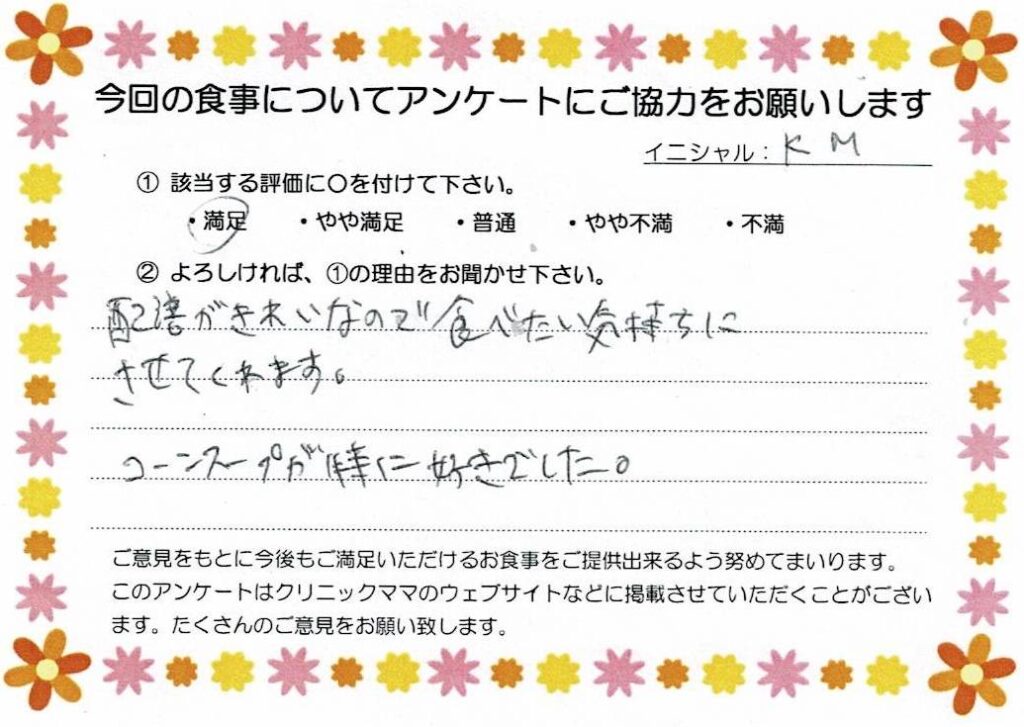 今回の食事についてアンケートにご協力をお願いします
イニシャル： K M
① 該当する評価に〇を付けて下さい。
・満足 ・やや満足 ・普通 ・やや不満 ・不満
② よろしければ、①の理由をお聞かせ下さい。
配膳がきれいなので食べたい気持ちに
させてくれます。
コーンスープが特に好きでした。
ご意見をもとに今後もご満足いただけるお食事をご提供出来るよう努めてまいります。
このアンケートはクリニックママのウェブサイトなどに掲載させていただくことがござい
ます。たくさんのご意見をお願い致します。